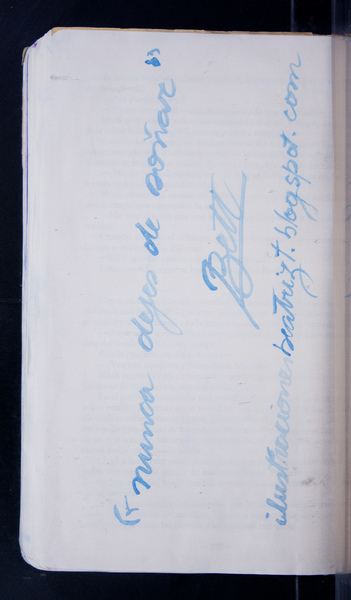 “nunca dejes de soñar”
Bett
ilustracionesbeatrizt.blogspot.com